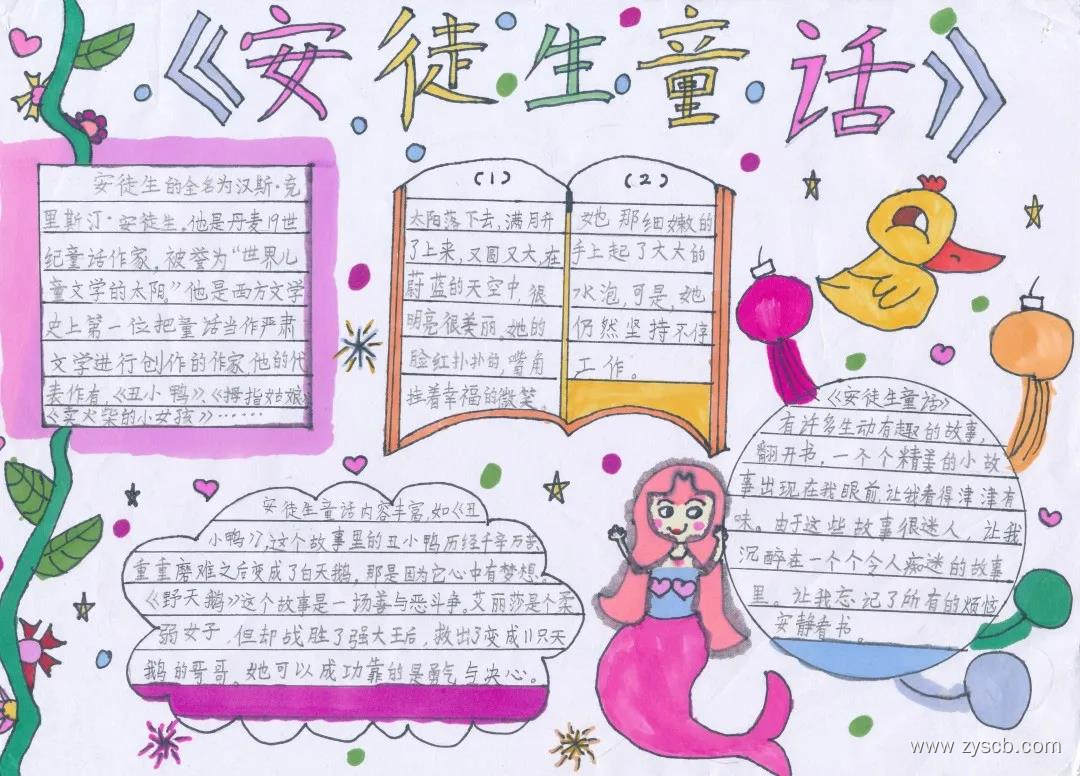 《安徒生童话》
安徒生的全名为汉斯·克
里斯汀·安徒生。他是丹麦19世
纪童话作家,被誉为“世界儿
童文学的太阳。”他是西方文学
史上第一位把童话当作严肃
文学进行创作的作家,他的代
表作有,《丑小鸭》、《拇指姑娘》
《卖火柴的小女孩》……
(1)
太阳落下去,满月升
了上来,又圆又大,在
蔚蓝的天空中,很
明亮很美丽。她的
脸红扑扑的,嘴角
挂着幸福的微笑。
(2)
她那细嫩的
手上起了大大的
水泡,可是,她
仍然坚持不停
工作。
《安徒生童话》
有许多生动有趣的故事,
翻开书,一个个精美的小故
事出现在我眼前,让我看得津津有
味。由于这些故事很迷人,让我
沉醉在一个个令人痴迷的故事
里。让我忘记了所有的烦恼
安静看书。
安徒生童话内容丰富,如《丑
小鸭》,这个故事里的丑小鸭历经千辛万苦、
重重磨难之后变成了白天鹅,那是因为它心中有梦想、
《野天鹅》这个故事是一场善与恶斗争。艾丽莎是个柔
弱女子,但却战胜了强大王后,救出了变成11只天
鹅的哥哥。她可以成功靠的是勇气与决心。
www.zyscb.com